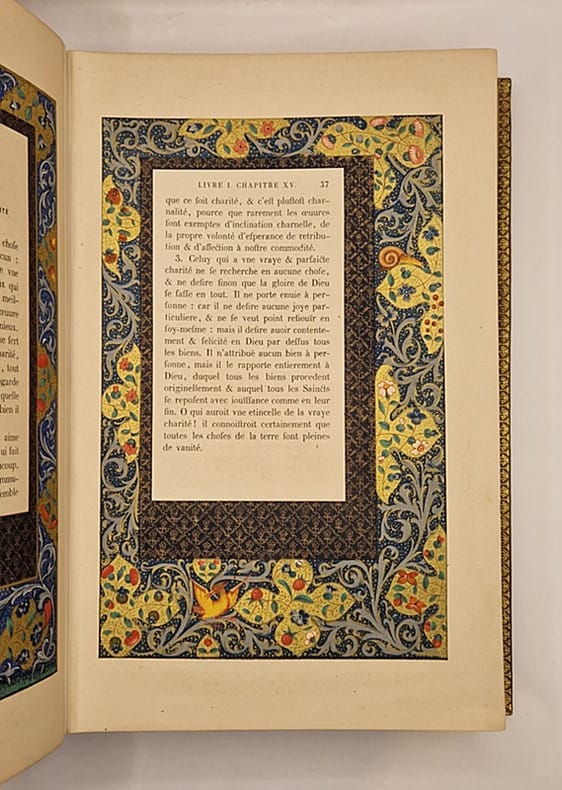 choſe
cun :
e vne
x qui
meil-
œuure
ieux.
ne ſert
arité,
, tout
egarde
quelle
bien il
aime
ui fait
ucoup,
mmu-
emble
LIVRE I. CHAPITRE XV. 37
que ce ſoit charité, & c'eſt pluſtoſt char-
nalité, pource que rarement les œuures
ſont exemptes d'inclination charnelle, de
la propre volonté d'eſperance de retribu-
tion & d'affection à noſtre commodité.
3. Celuy qui a vne vraye & parfaicte
charité ne ſe recherche en aucune choſe,
& ne deſire ſinon que la gloire de Dieu
ſe faſſe en tout. Il ne porte enuie à per-
ſonne : car il ne deſire aucune joye par-
ticuliere, & ne ſe veut point reſiouïr en
ſoy-meſme : mais il deſire auoir contente-
ment & felicité en Dieu par deſſus tous
les biens. Il n'attribuë aucun bien à per-
ſonne, mais il le rapporte entierement à
Dieu, duquel tous les biens procedent
originellement & auquel tous les Saincts
ſe repoſent avec iouïſſance comme en leur
fin. O qui auroit vne etincelle de la vraye
charité! il connoiſtroit certainement que
toutes les choſes de la terre ſont pleines
de vanité.